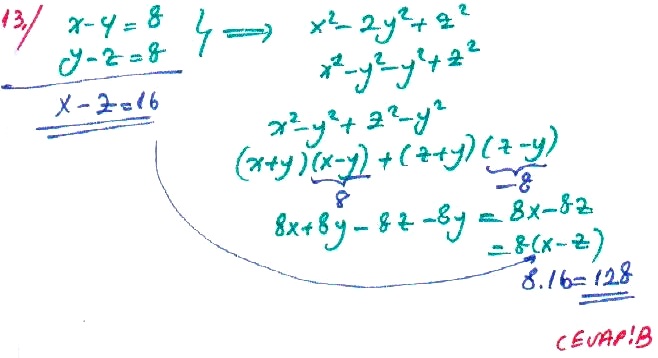 13/ x-y=8 } ⟹ x²-2y²+z²
y-z=8
x²-y²-y²+z²
x-z=16
x²-y²+z²-y²
(x+y)(x-y)+(z+y)(z-y)
8 -8
8x+8y-8z-8y = 8x-8z
=8(x-z)
8.16=128
CEVAP!B